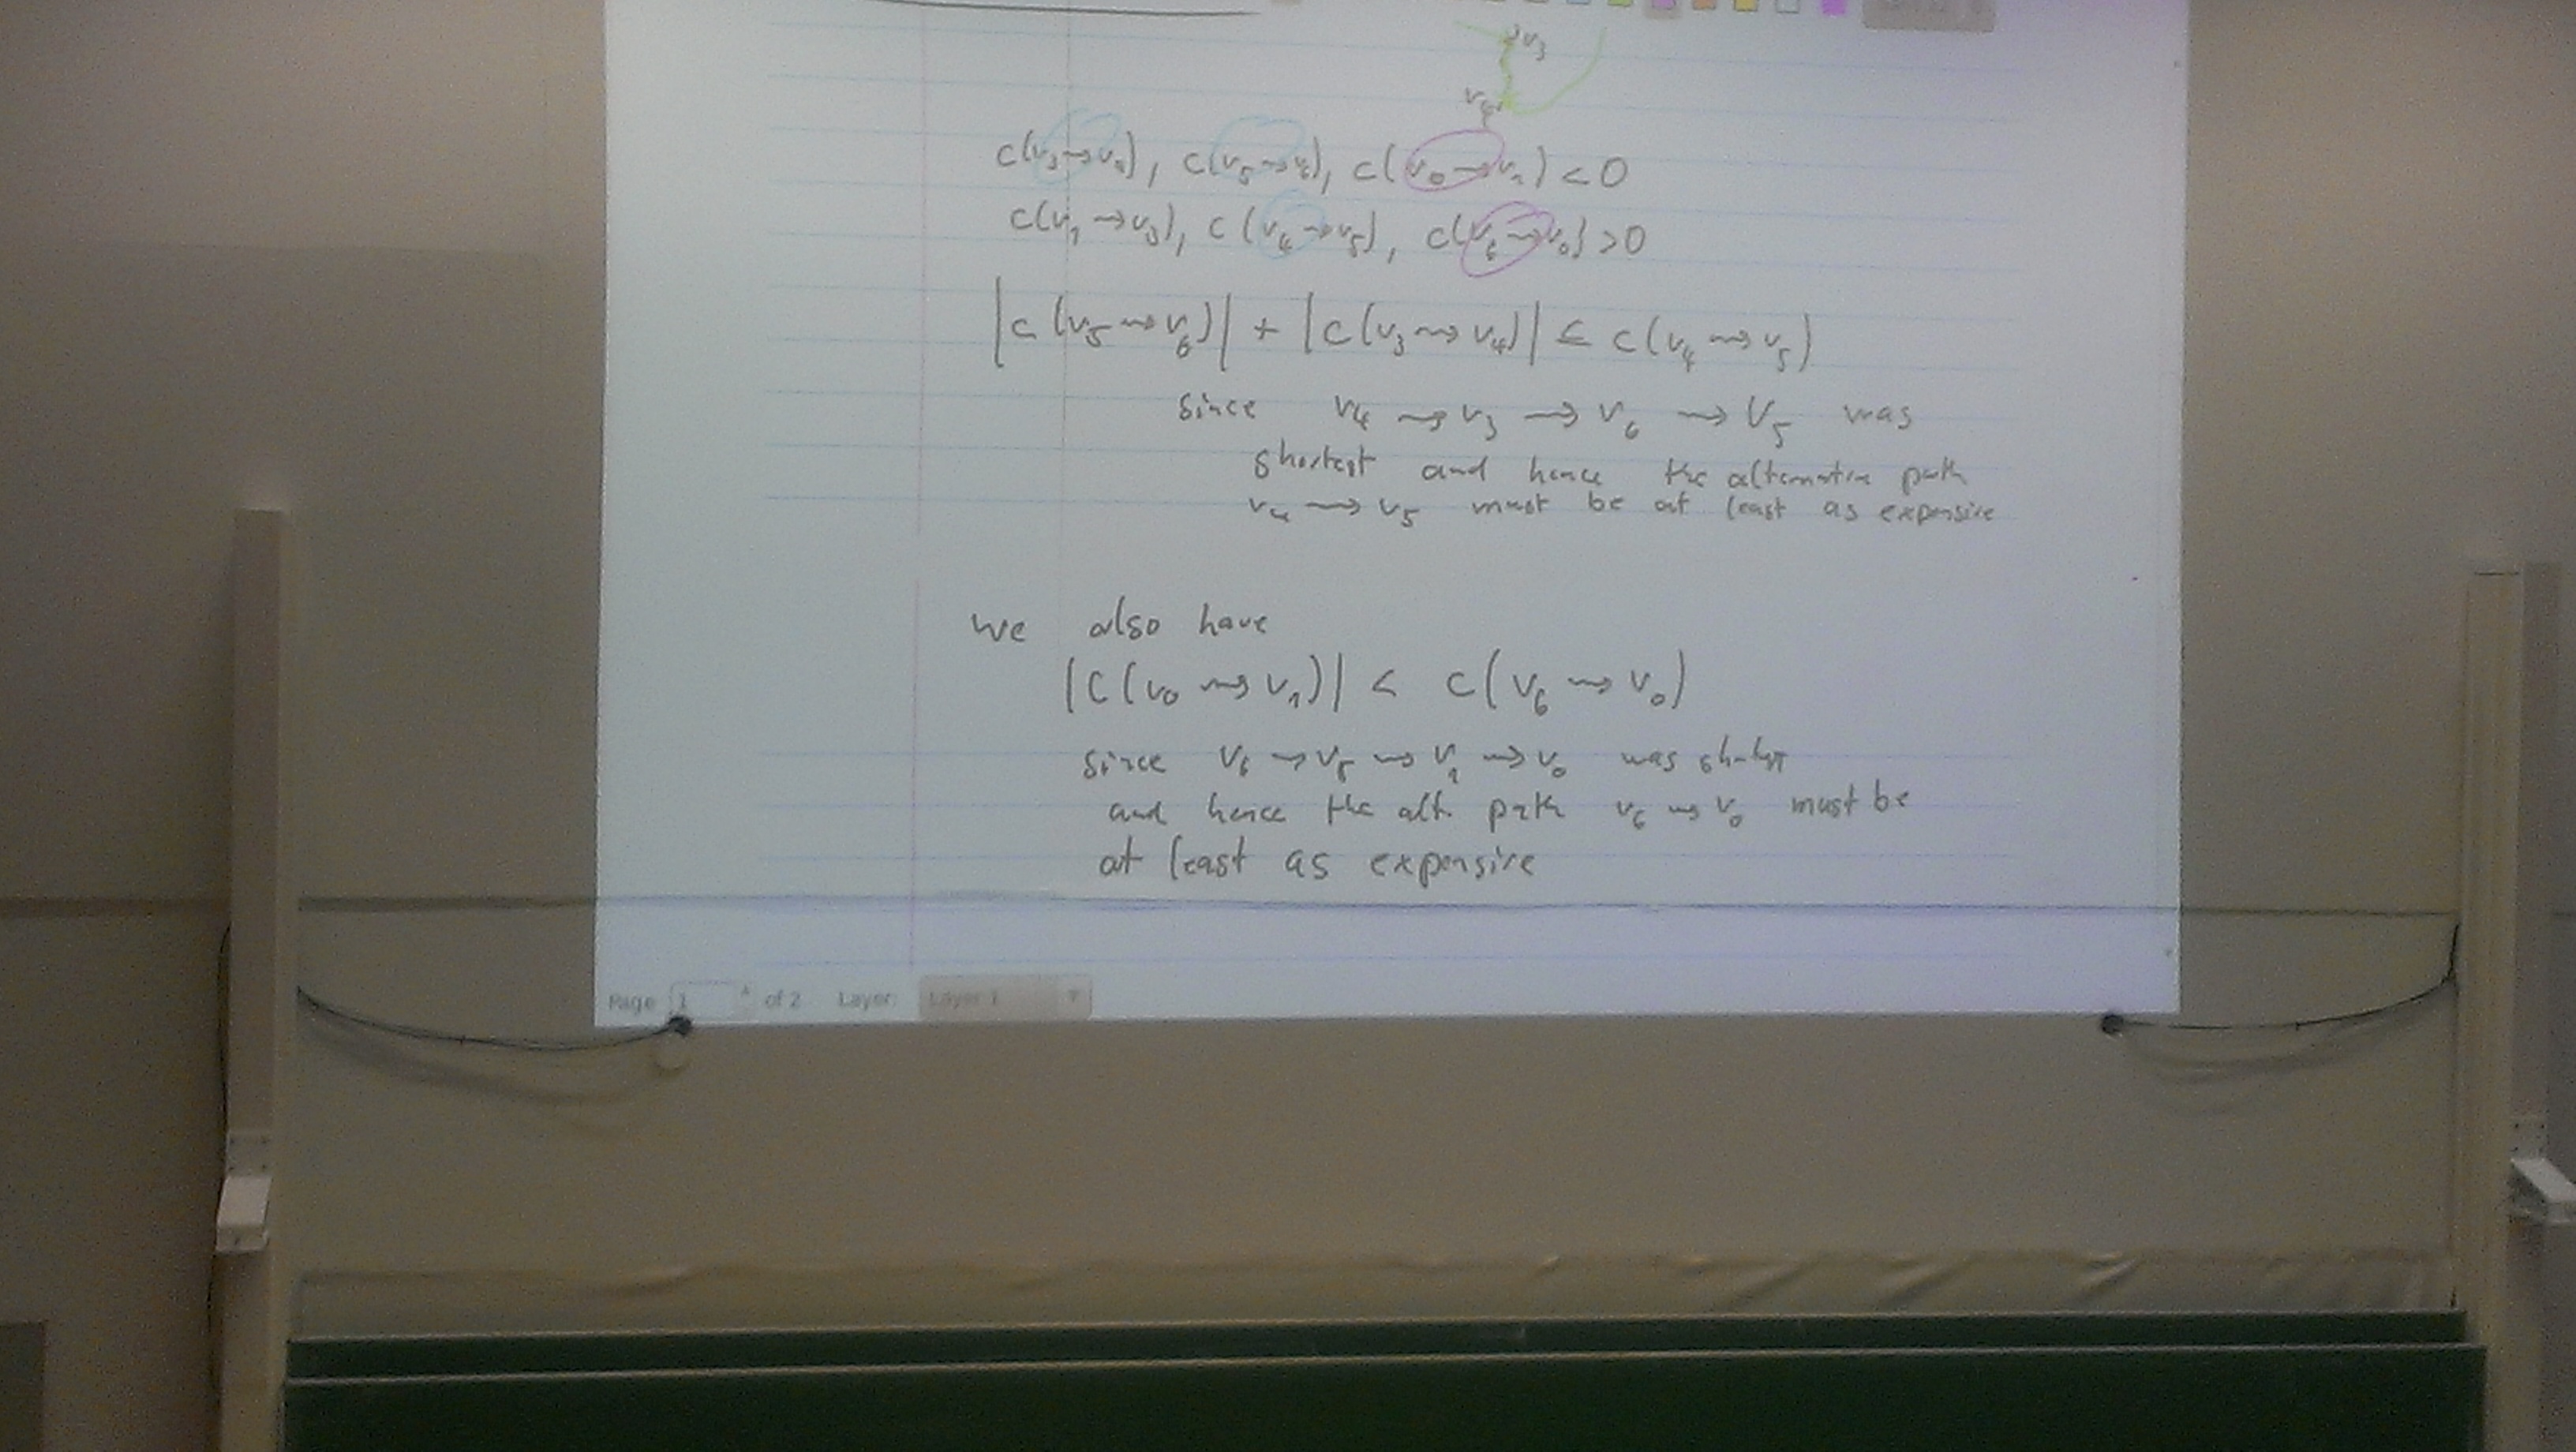 v₃
v₄
c(v₃⇝v₄), c(v₅⇝v₆), c(v₀⇝v₁) < 0
c(v₁⇝v₃), c(v₄⇝v₅), c(v₆⇝v₀) > 0
|c(v₅⇝v₆)| + |c(v₃⇝v₄)| ≤ c(v₄⇝v₅)
since v₄ ⇝ v₃ → v₆ ⇝ v₅ was
shortest and hence the alternative path
v₄ ⇝ v₅ must be at least as expensive
we also have
|c(v₀⇝v₁)| < c(v₆⇝v₀)
since v₆ ⇝ v₅ ⇝ v₁ ⇝ v₀ was shortest
and hence the alt. path v₆ ⇝ v₀ must be
at least as expensive
Page 1 of 2 Layer: Layer 1